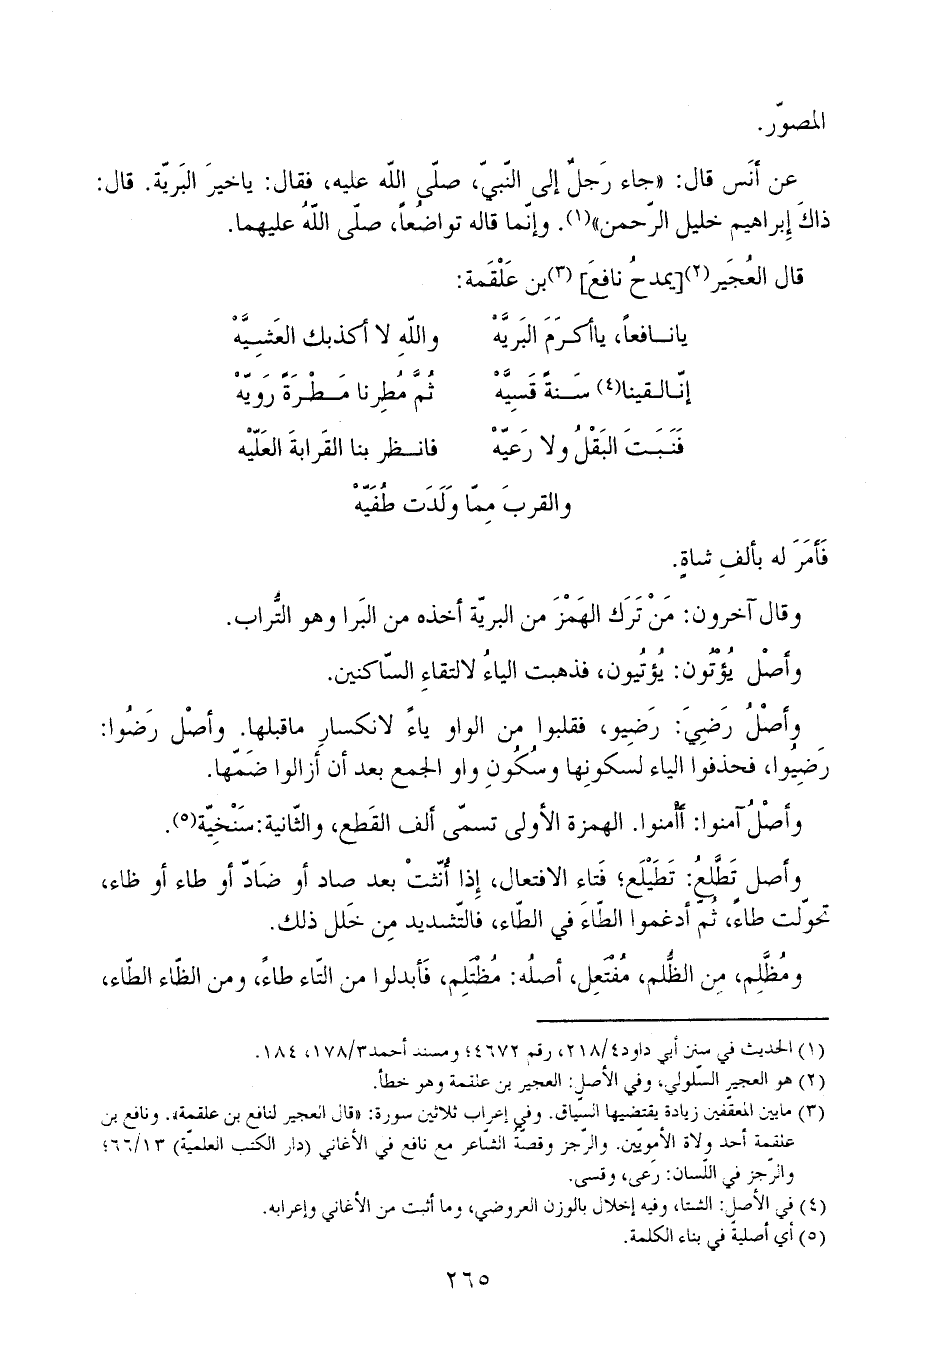 المصوّر.
عن أنَس قال: «جاء رَجلٌ إلى النّبيّ، صلّى اللّه عليه، فقال: ياخيرَ البَريّة. قال:
ذاكَ إبراهيم خليل الرّحمن»(١). وإنّما قاله تواضُعاً، صلّى اللّهُ عليهما.
قال العُجَير(٢)[يمدحُ نافعَ] (٣)بن عَلْقَمة:
يانـافعاً، ياأكـرَمَ البَريَّهْ واللّهِ لا أكذبك العَشيَّهْ
إنّـالـقينا(٤) سَـنةً قَسِيَّهْ ثُمَّ مُطِرنا مَـطْـرَةً رَويّهْ
فَنَبَـتَ البَقْلُ ولا رَعيّهْ فانـظر بنا القَرابةَ العَليّهْ
والقربَ مِمّا وَلَدَت طُفَيّهْ
فَأَمَرَ له بألفِ شاةٍ.
وقال آخرون: مَنْ تَرَك الهَمْزَ من البريّة أخذه من البَرا وهو التُّراب.
وأصْل يُؤْتُون: يُؤتُيون، فذهبت الياءُ لالتقاءِ السّاكنين.
وأصْلُ رَضِيَ: رَضِيو، فقلبوا من الواو ياءً لانكسارِ ماقبلها. وأصْل رَضُوا:
رَضِيُوا، فحذفوا الياء لسكونِها وسُكُونِ واو الجمع بعد أن أزالوا ضَمّها.
وأصْلُ آمنوا: أأْمنوا. الهمزة الأولى تسمّى ألف القَطع، والثّانية:سَنْخيّة(٥).
وأصل تَطَّلعُ: تَطَيْلَع؛ فَتاء الافتعال، إذا أُنّثتْ بعد صاد أو ضَادّ أو طاء أو ظاء،
تحوّلت طاءً، ثُمّ أدغموا الطّاءَ في الطّاء، فالتّشديد مِن خَلل ذلك.
ومُظَّلِم، مِن الظُّلم، مُفْتَعِل، أصلُه: مُظْتَلِم، فَأبدلوا من التّاء طاءً، ومن الظّاء الطّاء،
(١) الحديث في سنن أبي داود٢١٨/٤، رقم ٤٦٧٢؛ ومسند أحمد١٧٨/٣، ١٨٤.
(٢) هو العجير السّلولي، وفي الأصل: العجير بن علقمة وهو خطأ.
(٣) مابين المعقّفين زيادة يقتضيها السّياق. وفي إعراب ثلاثين سورة: «قال العجير لنافع بن علقمة». ونافع بن
علقمة أحد ولاة الأمويّين. والرّجز وقصة الشّاعر مع نافع في الأغاني (دار الكتب العلميّة) ٦٦/١٣؛
والرّجز في اللّسان: رَعى، وقسى.
(٤) في الأصل: الشتا، وفيه إخلال بالوزن العروضي، وما أثبت من الأغاني وإعرابه.
(٥) أي أصلية في بناء الكلمة.
٢٦٥